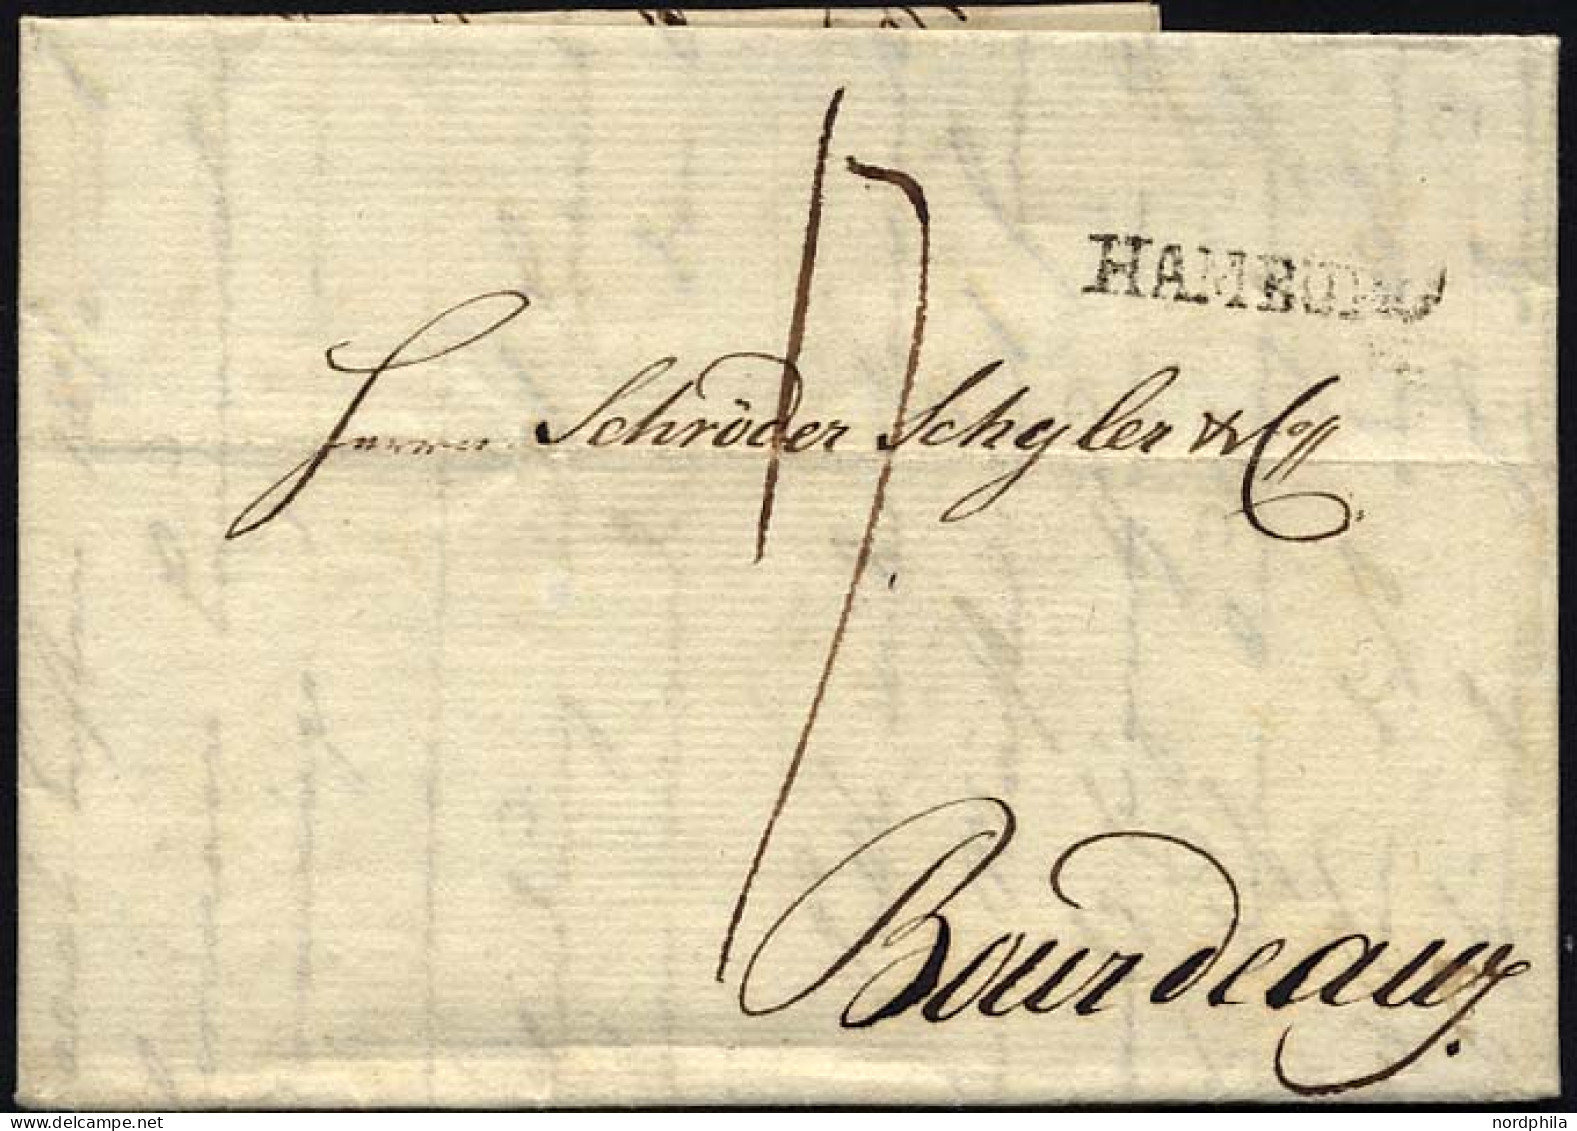 HAMBURG
17
Herren Schröder Schyler & Co.
Bourdeaux.
nordphila